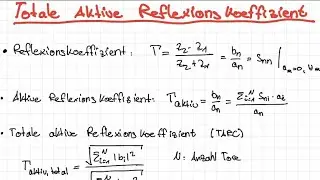 Totale Aktive Reflexions Koeffizient
• Reflexionskoeffizient: Γ = (Z₂ - Z₁)/(Z₂ + Z₁) = bₙ/aₙ = Sₙₙ | aₘ=0, ∀m
• Aktive Reflexions Koeffizient: Γaktiv = bₙ/aₙ = (Σᵢ₌₁ᴺ Sₙᵢ · aᵢ)/aₙ
• Totale aktive Reflexions Koeffizient (TARC)
Γaktiv,total = √(Σᵢ₌₁ᴺ |bᵢ|²) N: Anzahl Tore